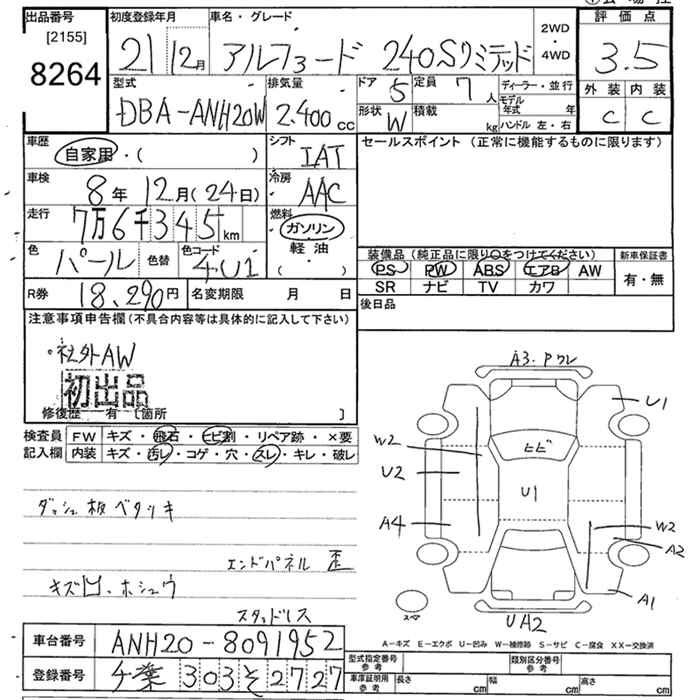 出品番号 初度登録年月 車名・グレード 2WD 4WD 評価点
[2155]
8264 21 12月 アルファード 240Sリミテッド 3.5
型式 排気量 ドア 5 定員 7人 ディーラー・並行 外装 内装
DBA-ANH20W 2.400cc 形状 W 積載 kg モデル年式 年 ハンドル 左・右 C C
車歴 自家用・( ) シフト IAT セールスポイント (正常に機能するものに限ります)
車検 8年 12月(24日) 冷房 AAC
走行 7万6千345km 燃料 ガソリン・軽油
( )
色 パール 色替 色コード 4U1
装備品(純正品に限り○をつけてください) 新車保証書
PS PW ABS エアB AW 有・無
SR ナビ TV カワ
R券 18,290円 名変期限 月 日 後日品
注意事項申告欄(不具合内容等は具体的に記入して下さい)
・社外AW
初出品
修復歴 有 [箇所 ]
検査員記入欄 FW キズ・飛石・ヒビ割・リペア跡・×要
内装 キズ・汚レ・コゲ・穴・スレ・キレ・破レ
ダッシュ板ベタツキ
エンドパネル 歪
キズ凹、ホシュウ
スタッドレス
A3・Pワレ
U1
W2
ヒビ
U2
U1
A4
W2
A2
A1
スペア
UA2
A-キズ E-エクボ U-凹み W-補修跡 S-サビ C-腐食 XX-交換済
車台番号 ANH20-8091952
登録番号 千葉 303 そ 2727
型式指定番号 参考 類別区分番号 参考
車庫証明用 参考 長さ cm 幅 cm 高さ cm